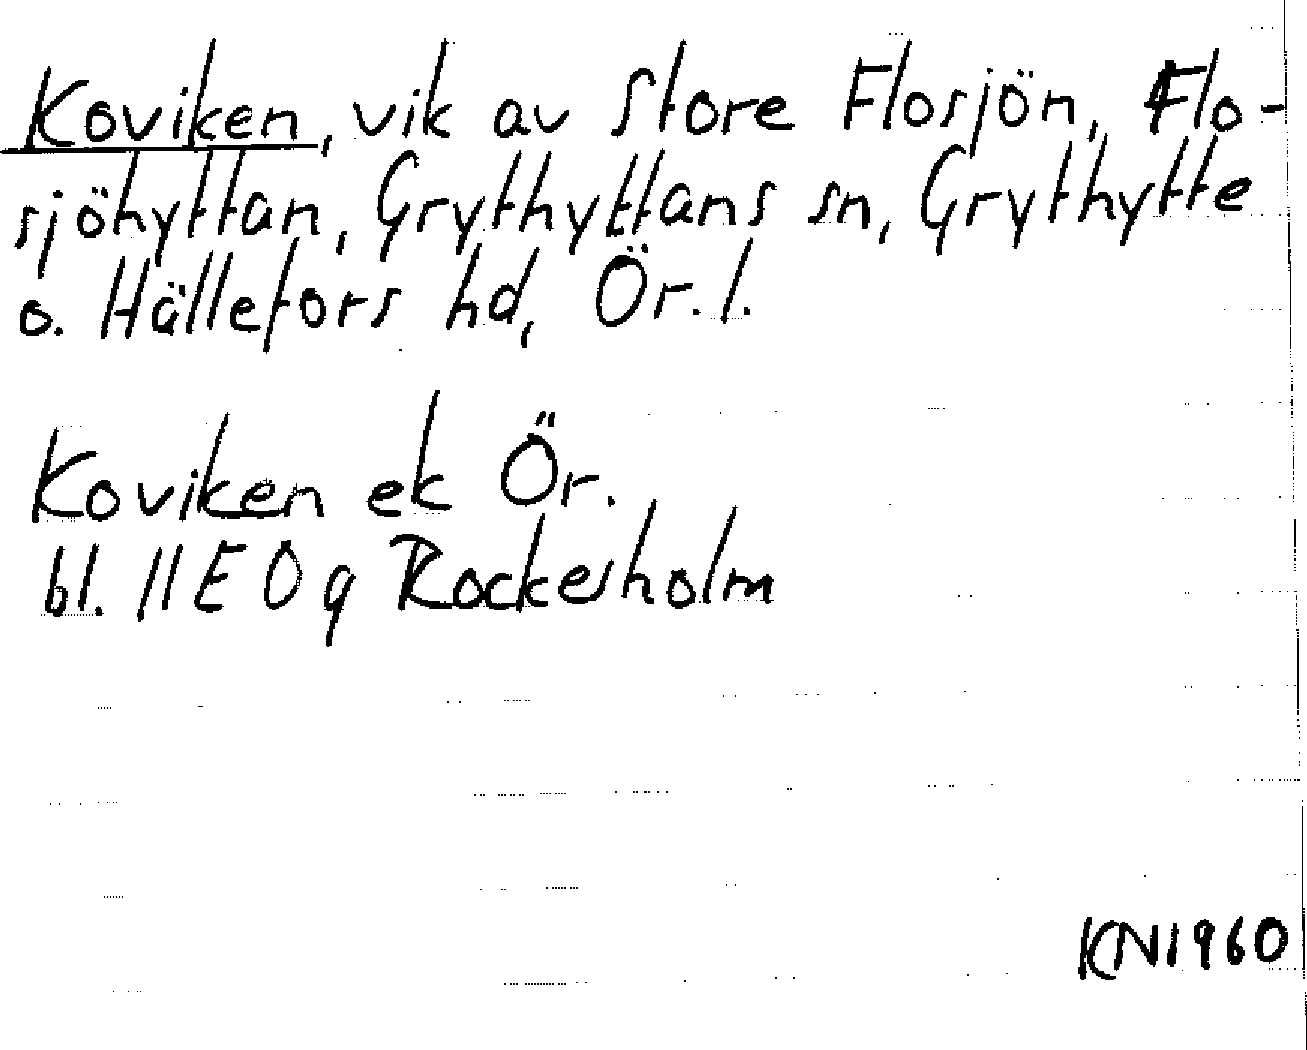 Koviken, vik av Store Flosjön, Flo-
sjöhyttan, Grythyttans sn, Grythytte
o. Hällefors hd, Ör. l.
Koviken ek Ör.
bl. 11E 0g Rockesholm
KN1960